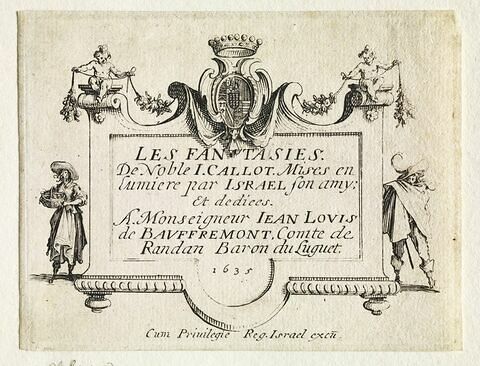 LES FANTASIES.
De Noble I. CALLOT. Mises en
lumiere par ISRAEL son amy:
Et dediees.
A. Monseigneur IEAN LOVIS
de BAVFFREMONT, Comte de
Randan Baron du Luguet.
1635
Cum Privilegie Reg. Israel excũ.